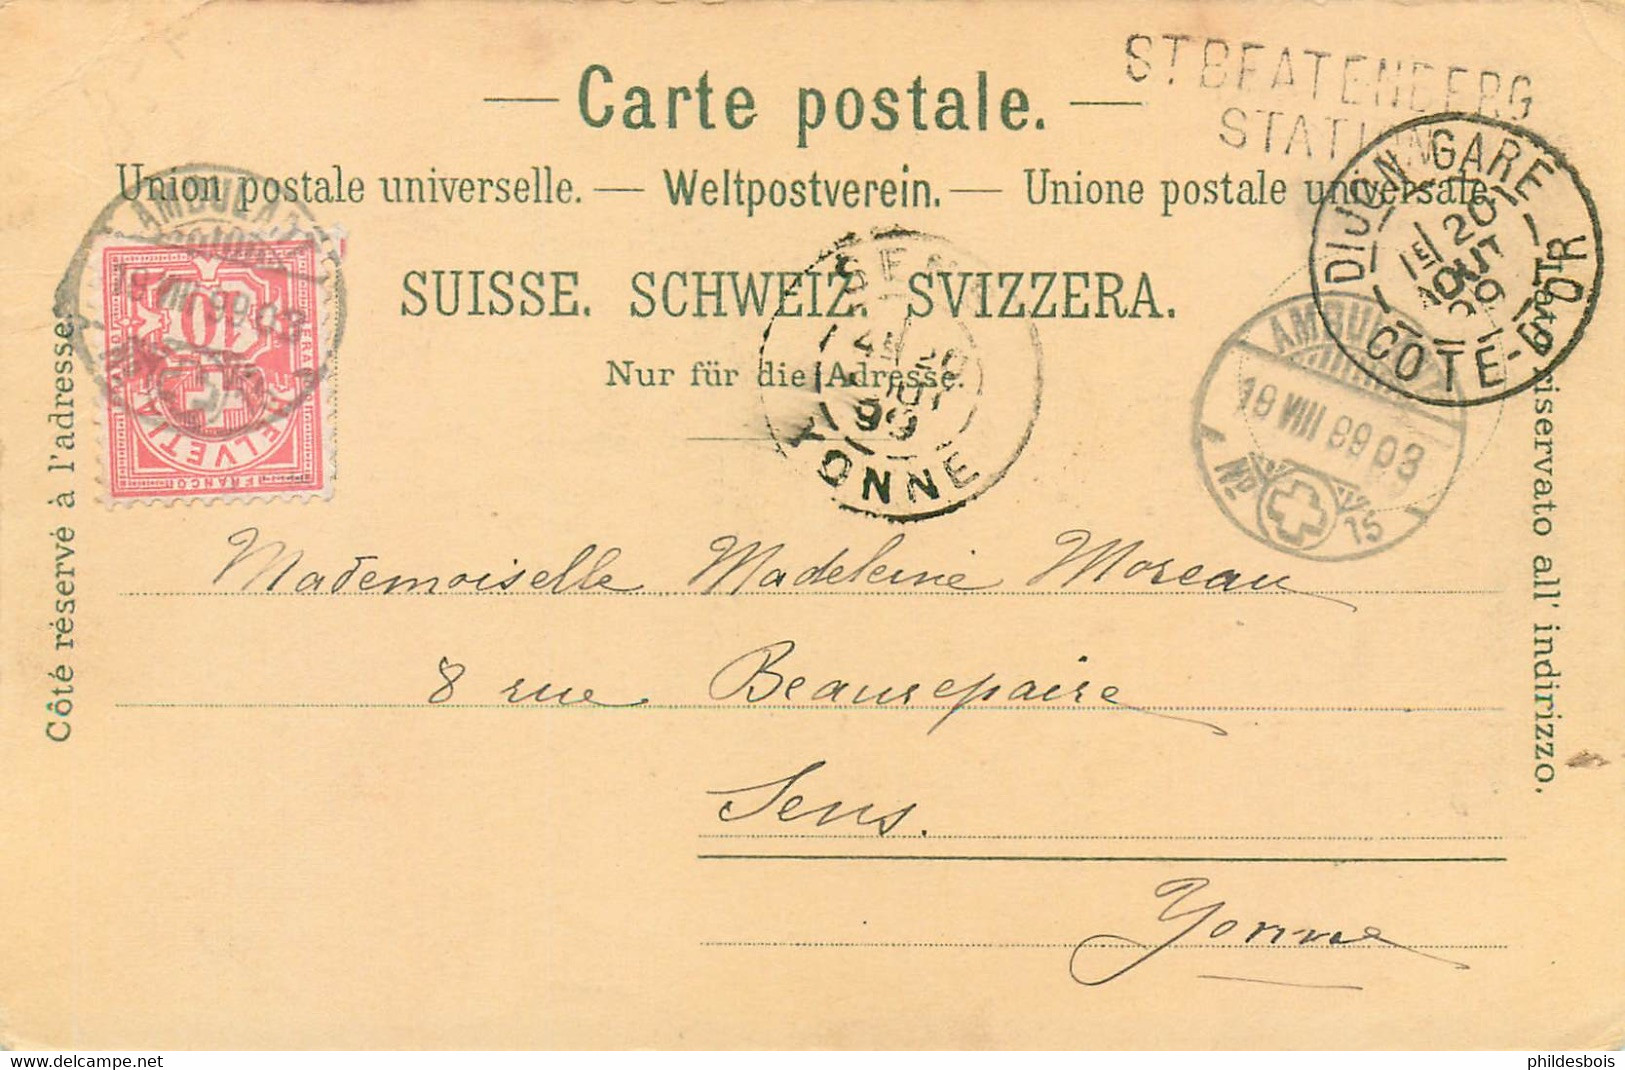 ST BEATENBERG
STATION
— Carte postale. —
Union postale universelle. — Weltpostverein. — Unione postale universale.
SUISSE. SCHWEIZ. SVIZZERA.
Nur für die Adresse.
Côté réservé à l'adresse.
Lato riservato all' indirizzo.
DIJON GARE
20
AOUT
99
COTE-D'OR
AMBULANT
19 VIII 99 03
10
FRANCO
HELVETIA
SENS
20
AOUT
99
YONNE
AMBULANT
19 VIII 99 03
No 15
Mademoiselle Madeleine Moreau
8 rue Beaurepaire
Sens.
Yonne
phildesbois